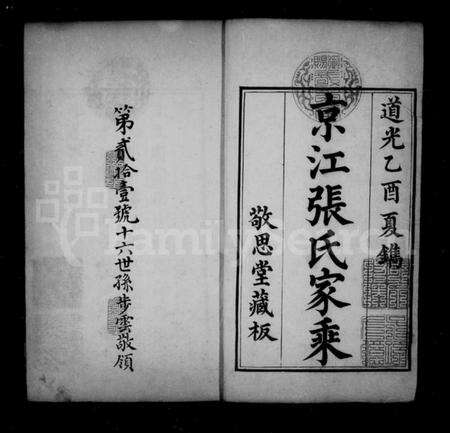 道光乙酉夏鐫
京江張氏家乘
敬思堂藏板
第貳拾壹號十六世孫步雲敬領
FamilySearch